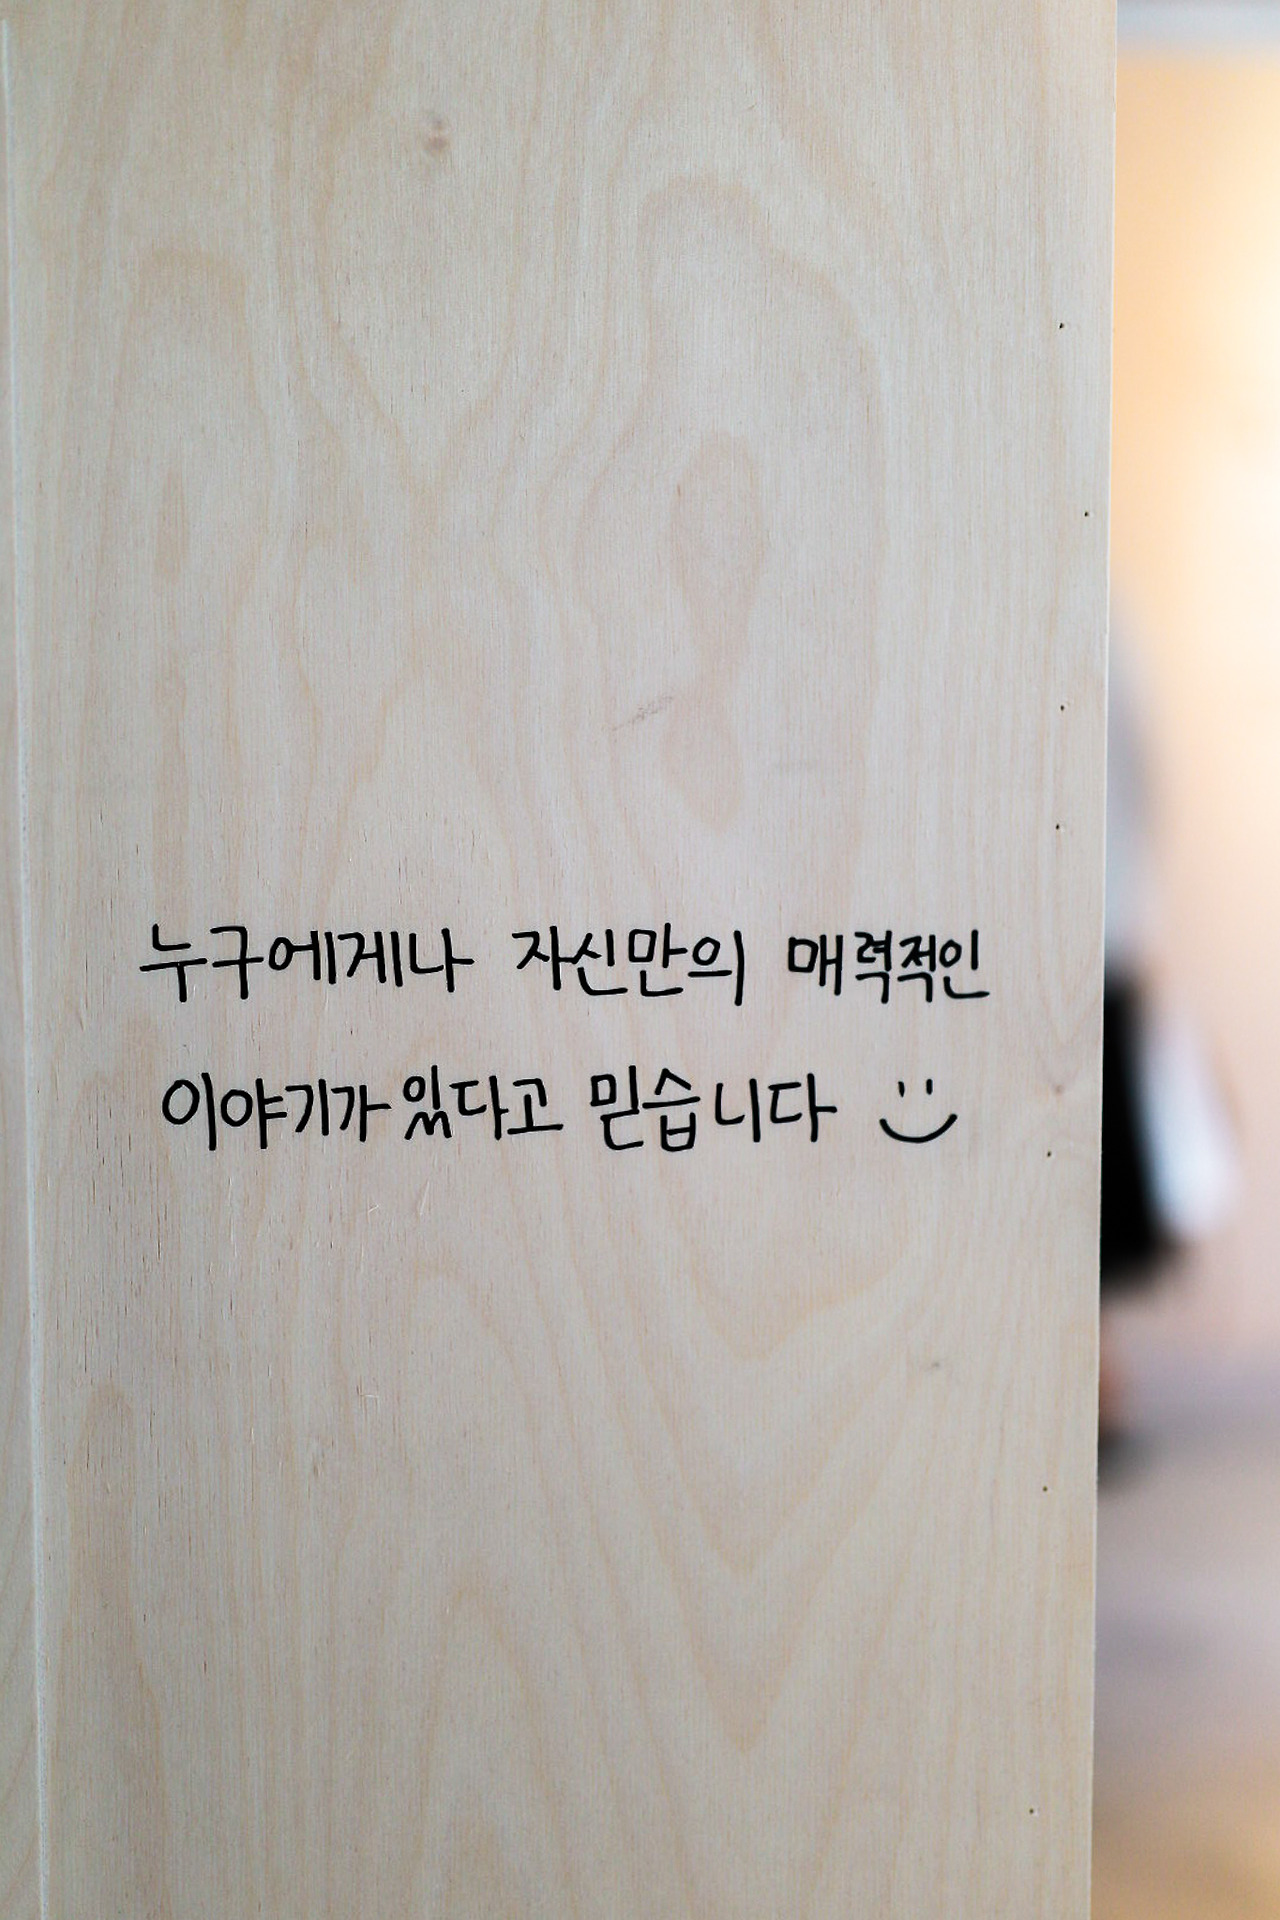 누구에게나 자신만의 매력적인
이야기가 있다고 믿습니다 :)